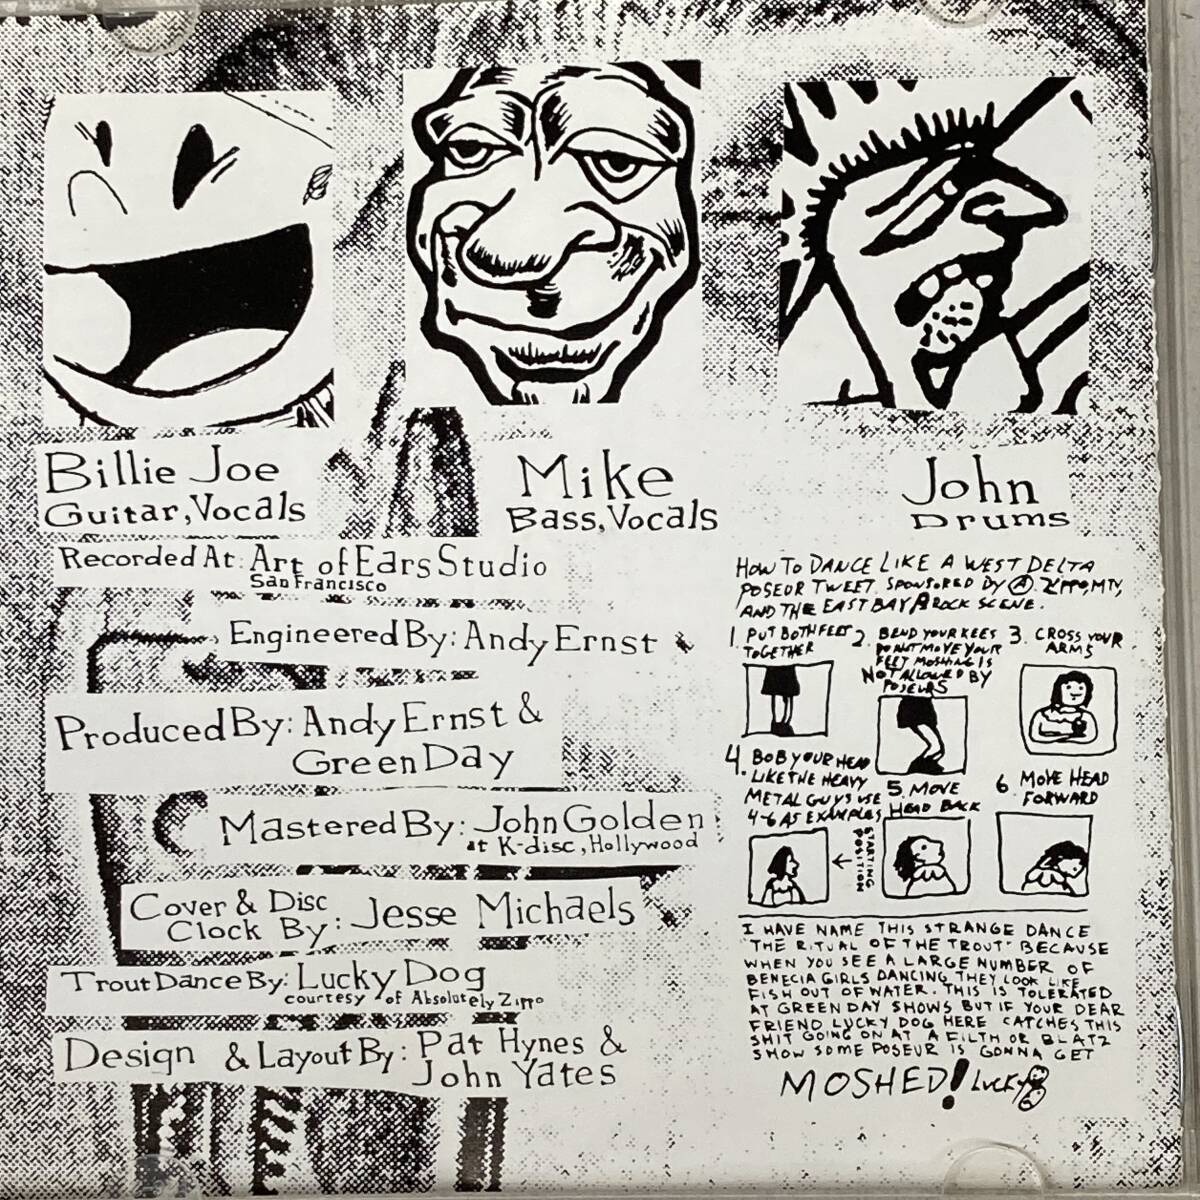 Billie Joe
Guitar, Vocals
Mike
Bass, Vocals
John
Drums
Recorded At: Art of Ears Studio
San Francisco
Engineered By: Andy Ernst
Produced By: Andy Ernst &
Green Day
Mastered By: John Golden
at K-disc, Hollywood
Cover & Disc
Clock By: Jesse Michaels
Trout Dance By: Lucky Dog
courtesy of Absolutely Zippo
Design & Layout By: Pat Hynes &
John Yates
HOW TO DANCE LIKE A WEST DELTA
POSEUR TWEET. SPONSORED BY A. ZIPPO, MTV,
AND THE EAST BAY ROCK SCENE.
1. PUT BOTH FEET
TOGETHER
2. BEND YOUR KEES
DO NOT MOVE YOUR
FEET MOSHING IS
NOT ALLOWED BY
POSEURS
3. CROSS YOUR
ARMS
4. BOB YOUR HEAD
LIKE THE HEAVY
METAL GUYS USE
4-6 AS EXAMPLES
STARTING
POSITION
5. MOVE
HEAD BACK
6 MOVE HEAD
FORWARD
I HAVE NAME THIS STRANGE DANCE
"THE RITUAL OF THE TROUT" BECAUSE
WHEN YOU SEE A LARGE NUMBER OF
BENECIA GIRLS DANCING THEY LOOK LIKE
FISH OUT OF WATER. THIS IS TOLERATED
AT GREEN DAY SHOWS BUT IF YOUR DEAR
FRIEND LUCKY DOG HERE CATCHES THIS
SHIT GOING ON AT A FILTH OR BLATZ
SHOW SOME POSEUR IS GONNA GET
MOSHED! LUCKY